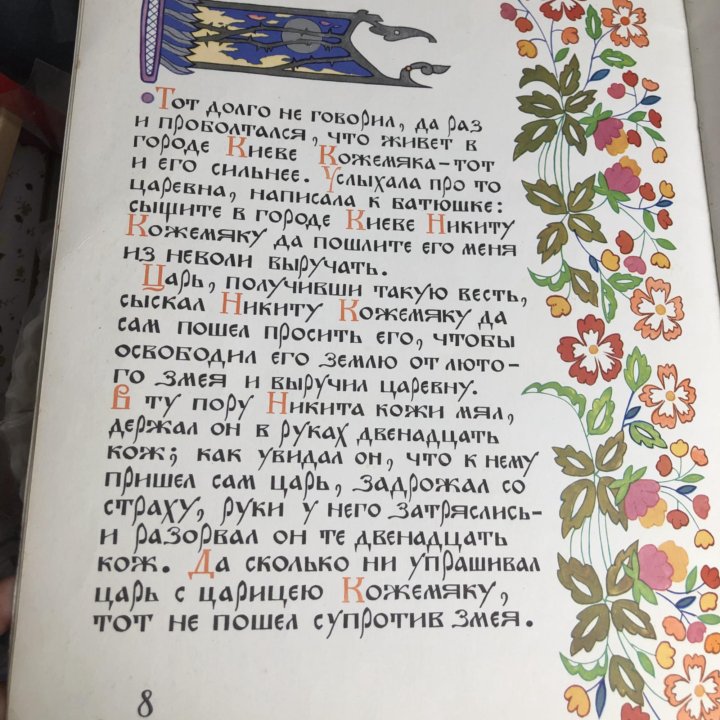 Тот долго не говорил, да раз
и проболтался, что живет в
городе Киеве Кожемяка-тот
и его сильнее. Услыхала про то
царевна, написала к батюшке:
сыщите в городе Киеве Никиту
Кожемяку да пошлите его меня
из неволи выручать.
Царь, получивши такую весть,
сыскал Никиту Кожемяку да
сам пошел просить его, чтобы
освободил его землю от люто-
го змея и выручил царевну.
В ту пору Никита кожи мял,
держал он в руках двенадцать
кож; как увидал он, что к нему
пришел сам царь, задрожал со
страху, руки у него затряслись-
и разорвал он те двенадцать
кож. Да сколько ни упрашивал
царь с царицею Кожемяку,
тот не пошел супротив змея.
8